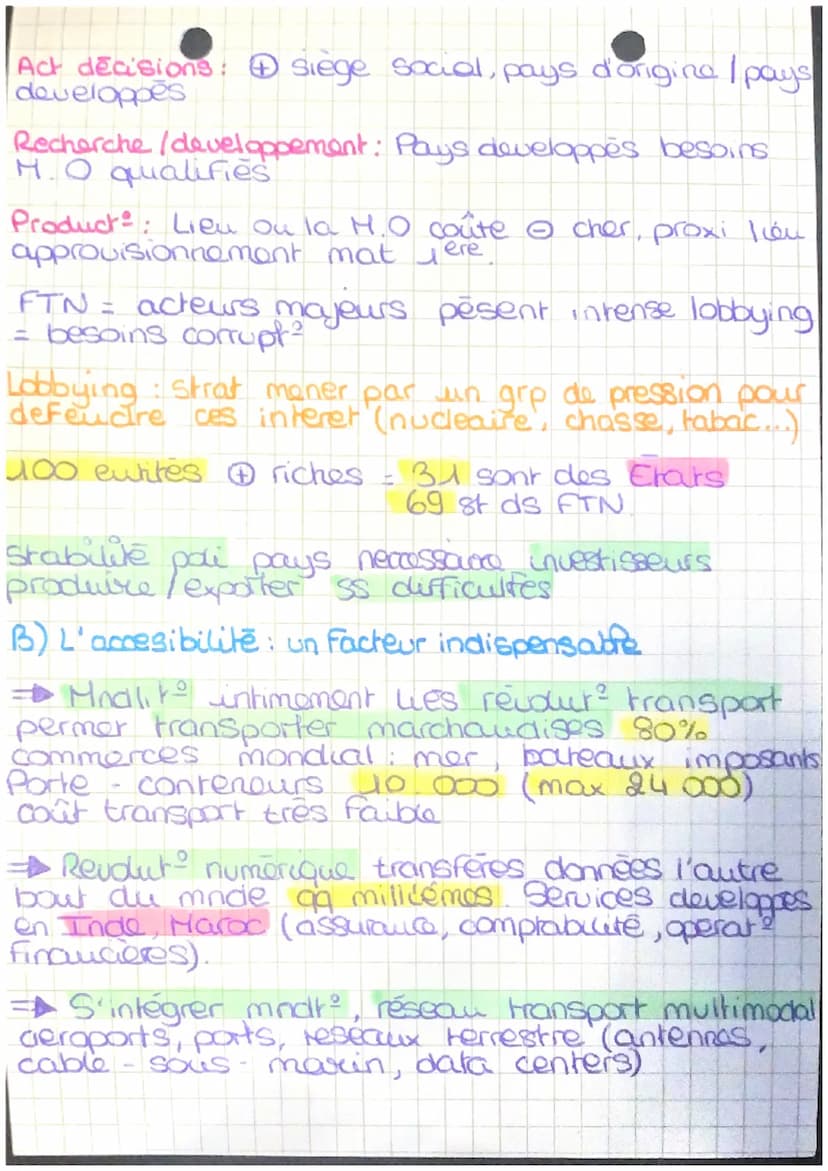 Act décisions : ⊕ siège social, pays d'origine / pays
developpés
Recherche / developpement : Pays developpés besoins
M.O qualifiés
Product° : Lieu ou la M.O coûte ⊖ cher, proxi lieu
approvisionnement mat 1ère.
FTN = acteurs majeurs pésent intense lobbying
= besoins corrupt°
Lobbying : Strat mener par un grp de pression pour
défendre ces interet (nucleaire, chasse, tabac...)
100 entités ⊕ riches = 31 sont des États
69 st ds FTN.
Stabilité poli pays necessaire investisseurs
produire / exporter ss difficultés
B) L'accesibilité : un facteur indispensable
⇒ Mndlit° intimement liés révolut° transport
permer transporter marchandises 80%
commerces mondial : mer, bateaux imposants
Porte - conteneurs 10 000 (max 24 000)
coût transport très faible
⇒ Revolut° numérique transférés données l'autre
bout du mnde qq millièmes. Services developpés
en Inde, Maroc (assurance, comptabilité, operat°
financières).
⇒ S'intégrer mndt°, réseau transport multimodal
aeroports, ports, reseaux terrestre (antennes,
cable - sous - marin, data centers)